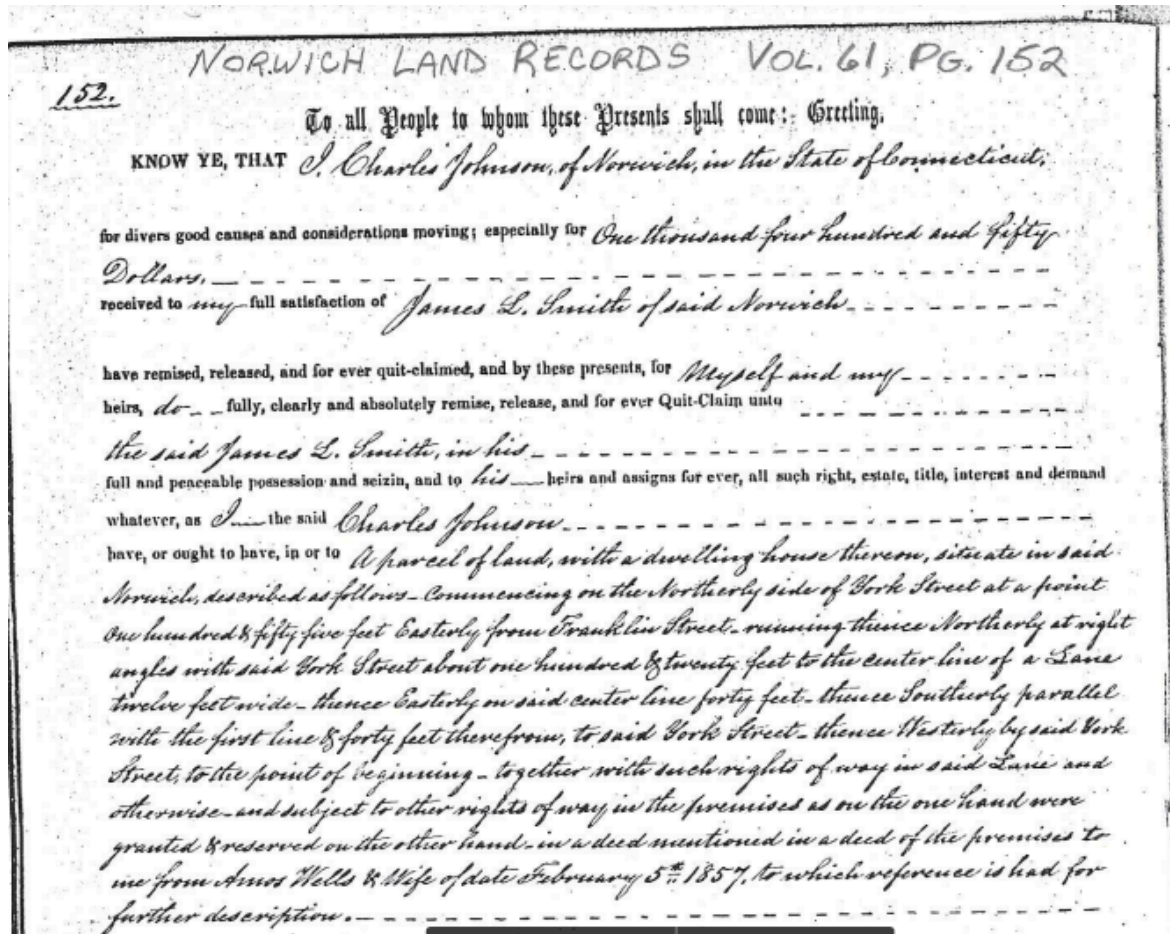 NORWICH LAND RECORDS VOL. 61, PG. 152
152.
To all People to whom these Presents shall come: Greeting.
KNOW YE, THAT I, Charles Johnson, of Norwich, in the State of Connecticut,
for divers good causes and considerations moving; especially for One thousand four hundred and fifty
Dollars,
received to my full satisfaction of James L. Smith of said Norwich
have remised, released, and for ever quit-claimed, and by these presents, for Myself and my
heirs, do fully, clearly and absolutely remise, release, and for ever Quit-Claim unto
the said James L. Smith, in his
full and peaceable possession and seizin, and to his heirs and assigns for ever, all such right, estate, title, interest and demand
whatever, as I the said Charles Johnson
have, or ought to have, in or to A parcel of land, with a dwelling house thereon, situate in said
Norwich, described as follows - Commencing on the Northerly side of York Street at a point
One hundred & fifty five feet Easterly from Franklin Street - running thence Northerly at right
angles with said York Street about one hundred & twenty feet to the center line of a Lane
twelve feet wide - thence Easterly on said center line forty feet - thence Southerly parallel
with the first line & forty feet therefrom, to said York Street - thence Westerly by said York
Street, to the point of beginning - together with such rights of way in said Lane and
otherwise - and subject to other rights of way in the premises as on the one hand were
granted & reserved on the other hand - in a deed mentioned in a deed of the premises to
me from Amos Wells & Wife of date February 5th 1857, to which reference is had for
further description.